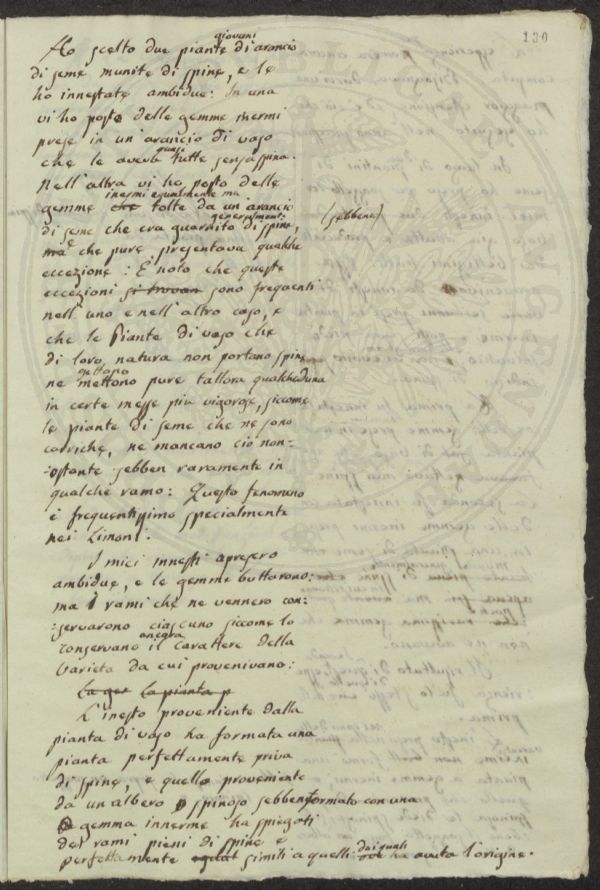 130
giovani
Ho scelto due piante di arancio
di seme munite di spine, e le
ho innestate ambidue: In una
vi ho posto delle gemme inermi
prese in un' arancio di vaso
che le aveva quasi tutte senza spina.
Nell'altra vi ho posto delle
inermi egualmente ma
gemme che tolte da un' arancio
generalment:
di seme che era guarnito di spine, (sebbene)
ma che pure presentava qualche
eccezione: È noto che queste
eccezioni si trovan sono frequenti
nell' uno e nell' altro caso, e
che le Piante di vaso che
di loro natura non portano spine
gettano
ne mettono pure tallora qualcheduna
in certe messe più vigorose, siccome
le piante di seme che ne sono
carriche, ne mancano ciò non-
:ostante sebben raramente in
qualche ramo: Questo fenomeno
è frequentissimo specialmente
nei Limoni.
I miei innesti apresero
ambidue, e le gemme buttarono:
ma i rami che ne vennero con:
:servarono ciascuno siccome lo
ancora
conservano il Carattere della
Varietà da cui provenivano:
La La pianta p
L'inesto proveniente dalla
pianta di vaso ha formata una
pianta perfettamente priva
di spine, e quello proveniente
da un albero spinoso sebben formato con una
gemma innerme ha spiegati
dei rami pieni di spine e
dai quali
perfettamente simili a quelli ha avuta l'origine.